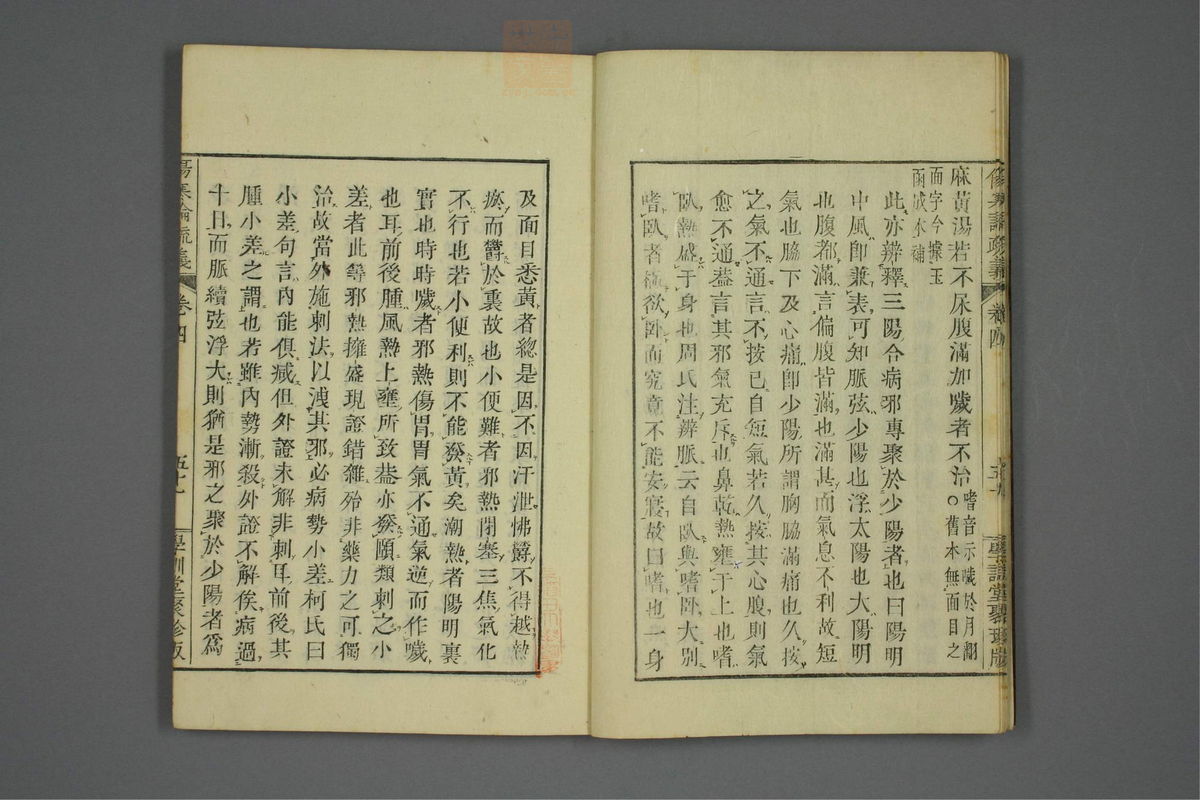 麻黃湯若不尿腹滿加噦者不治 嗜音示噦於月翻○舊本無面目之
面字今據玉函成本補
此亦辨釋三陽合病邪專聚於少陽者也曰陽明
中風卽兼表可知脈弦少陽也浮太陽也大陽明
也腹都滿言偏腹皆滿也滿甚而氣息不利故短
氣也脇下及心痛卽少陽所謂胸脇滿痛也久按
之氣不通言不按已自短氣若久按其心腹則氣
愈不通蓋言其邪氣充斥也鼻乾熱壅于上也嗜
臥熱盛于身也周氏注辨脈云自臥與嗜臥大別
嗜臥者欲臥而究竟不能安寢故曰嗜也一身
及面目悉黃者總是因不因汗泄怫欝不得越熱
瘀而欝於裏故也小便難者邪熱閉塞三焦氣化
不行也若小便利則不能發黃矣潮熱者陽明裏
實也時時噦者邪熱傷胃胃氣不通氣逆而作噦
也耳前後腫風熱上壅所致蓋亦發頤類刺之小
差者此等邪熱擁盛現證錯雜殆非藥力之可獨
治故當外施刺法以洩其邪必病勢小差柯氏曰
小差句言內能俱減但外證未解非刺耳前後其
腫小差之謂也若雖內勢漸殺外證不解俟病過
十日而脈續弦浮大則猶是邪之聚於少陽者爲
傷寒論疏義
卷四